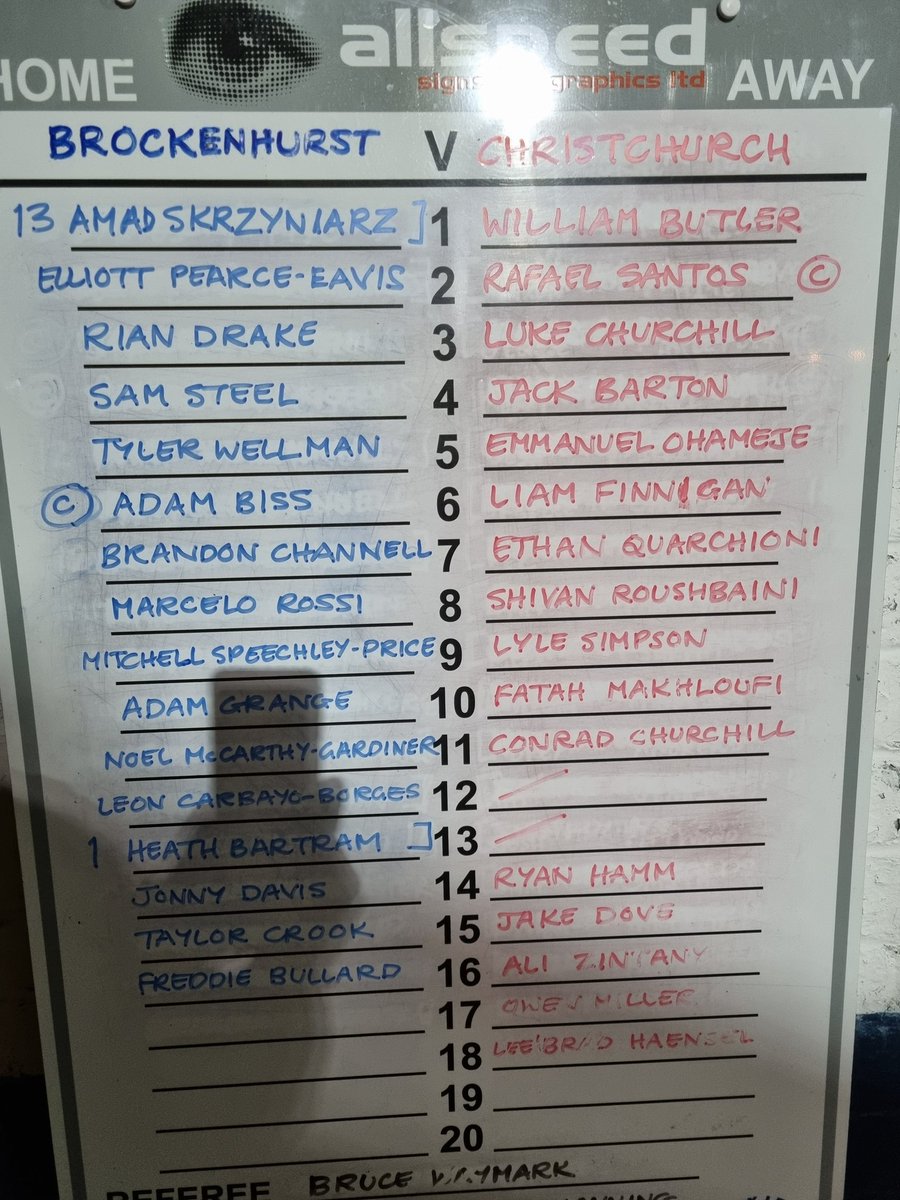 allspeed
signs graphics ltd
HOME AWAY
BROCKENHURST V CHRISTCHURCH
13 AMAD SKRZYNIARZ ] 1 WILLIAM BUTLER
ELLIOTT PEARCE-EAVIS 2 RAFAEL SANTOS ©
RIAN DRAKE 3 LUKE CHURCHILL
SAM STEEL 4 JACK BARTON
TYLER WELLMAN 5 EMMANUEL OHAMEJE
© ADAM BISS 6 LIAM FINNIGAN
BRANDON CHANNELL 7 ETHAN QUARCHIONI
MARCELO ROSSI 8 SHIVAN ROUSHBAINI
MITCHELL SPEECHLEY-PRICE 9 LYLE SIMPSON
ADAM GRANGE 10 FATAH MAKHLOUFI
NOEL McCARTHY-GARDINER 11 CONRAD CHURCHILL
LEON CARBAYO-BORGES 12
1 HEATH BARTRAM ] 13
JONNY DAVIS 14 RYAN HAMM
TAYLOR CROOK 15 JAKE DOVE
FREDDIE BULLARD 16 ALI
17 OWEN MILLER
18 LEE'BRAD HAENSEL
19
20
REFEREE BRUCE WAYMARK